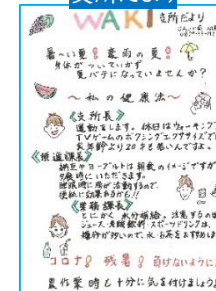 WAKI 支所だより
暑~い夏 豪雨の夏
身体がついていかず
夏バテになっていませんか?
~私の健康法~
《支所長》
運動をします。休日はウォーキング
TVゲームのボクシングエクササイズで
実年齢より20才も若いんですよ。
納豆やヨーグルトは朝食のイメージですが
夕食時にいただきます。
便秘に効果あるかも!!
とにかく水分補給。注意するのは
ジュース、炭酸飲料、スポーツドリンクは、
糖分が多いので、水、お茶を
コロナ 残暑 負けないように
農作業時も十分に気を付けましょう